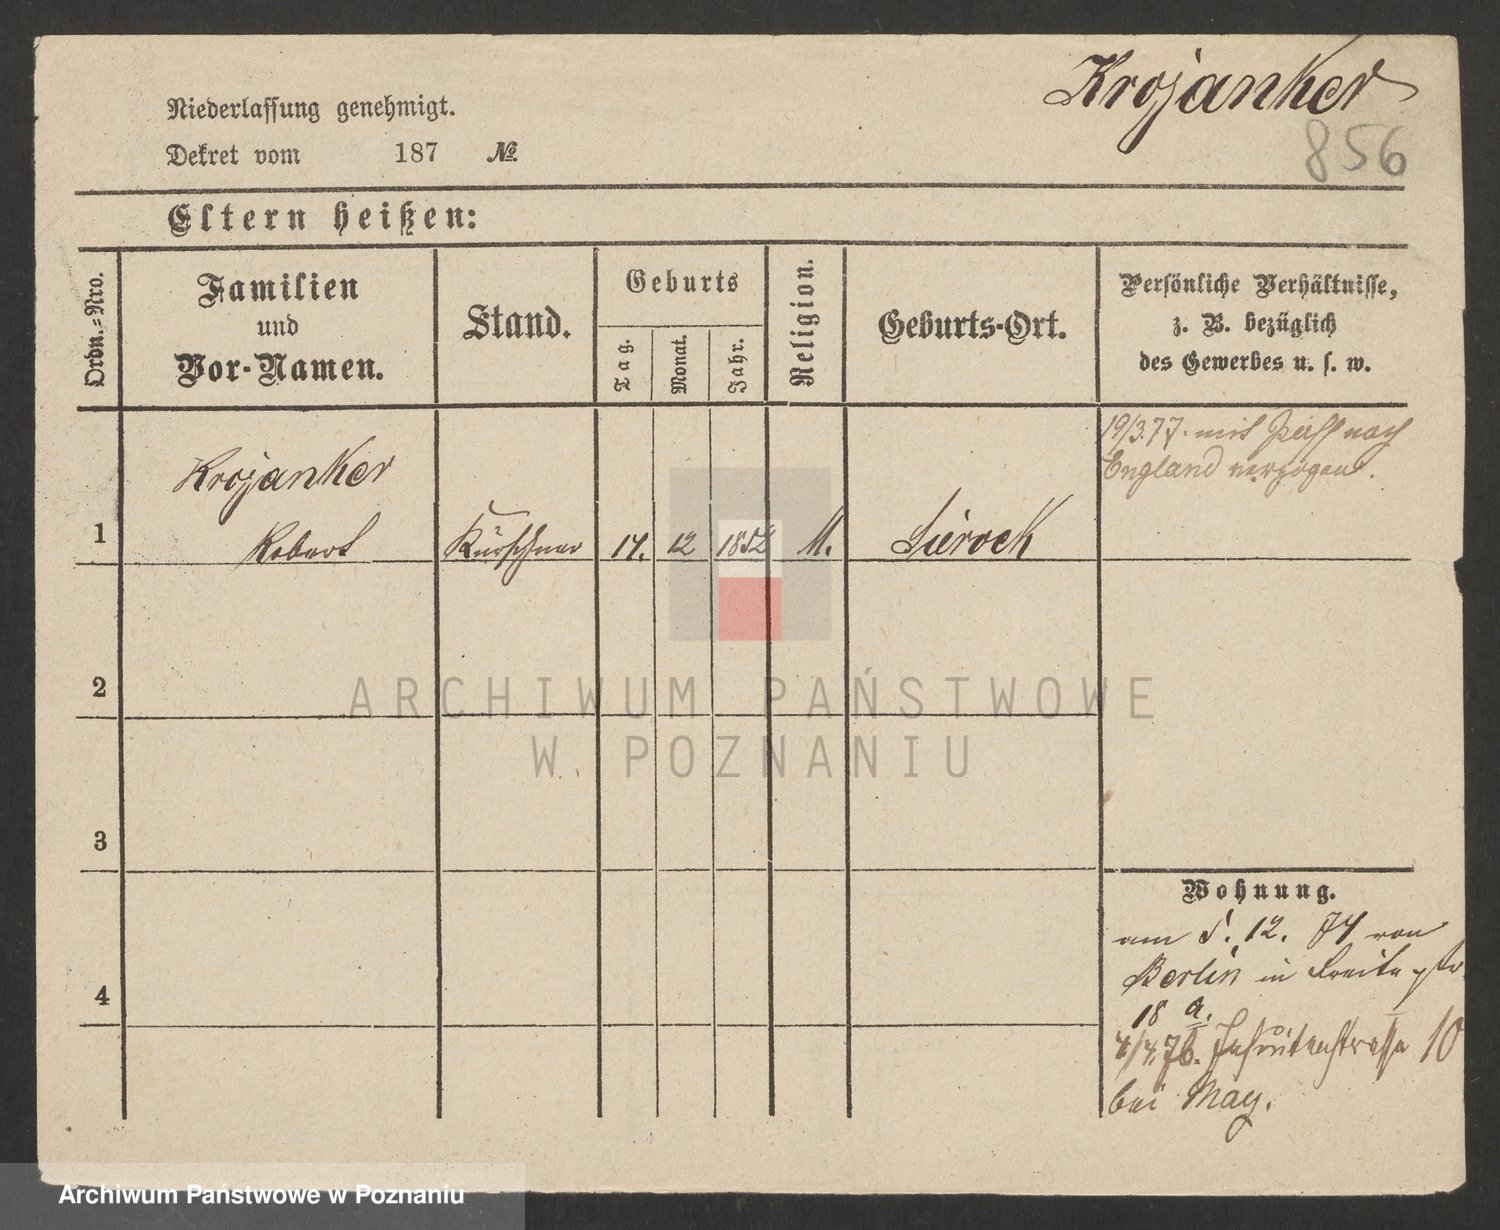 Krojanker
856
Niederlassung genehmigt.
Dekret vom 187 №
Eltern heißen:
Ordn.-Nro.
Familien
und
Vor-Namen.
Stand.
Geburts
Tag.
Monat.
Jahr.
Religion.
Geburts-Ort.
Persönliche Verhältnisse,
z. B. bezüglich
des Gewerbes u. s. w.
19/3.77. mit Paß nach
England verzogen.
Krojanker
1 Robert Kürschner 14. 12 1852 M. Sierock
2
3
4
Wohnung.
am 5. 12. 74 von
Berlin in Breite str
18 a.
4/4.76. Jesuitenstrasse 10
bei May.
ARCHIWUM PAŃSTWOWE
W POZNANIU
Archiwum Państwowe w Poznaniu